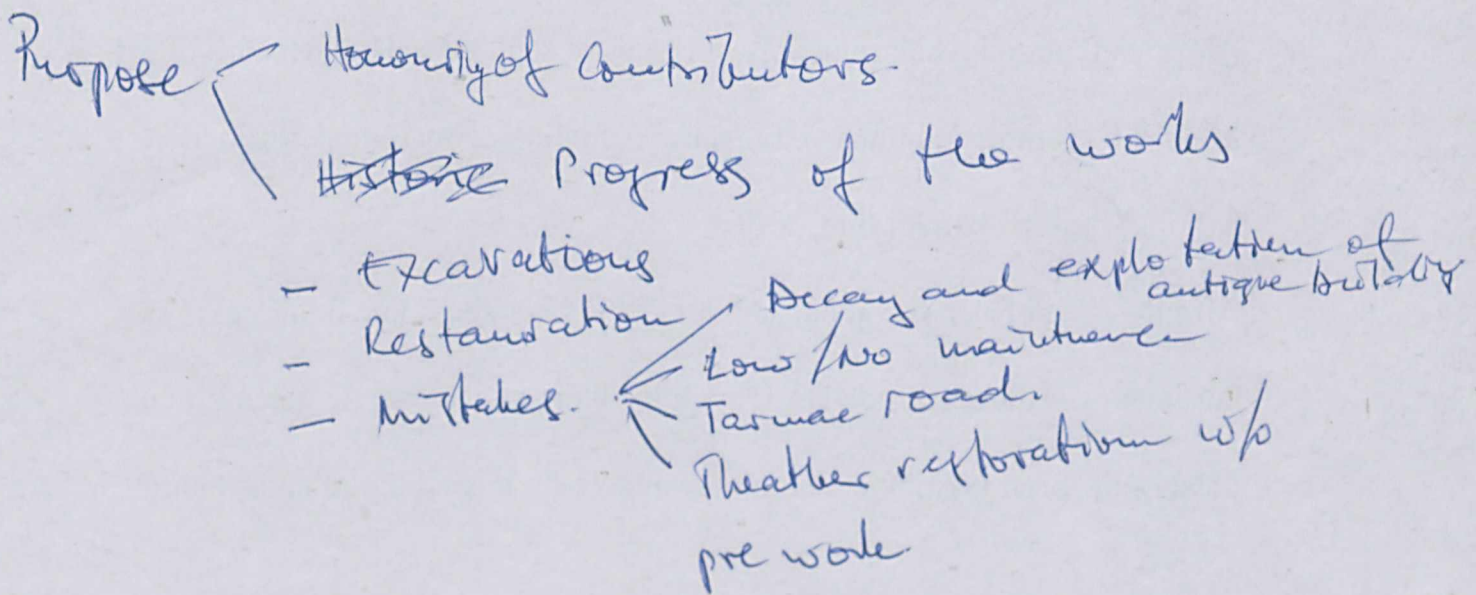 Propose
Honouring of Contributors.
Historic Progress of the works
- Excavations
- Restauration
- Mistakes.
Decay and explotation of
antique building
Low/No maintenance
Tarmac road.
Theather restoration w/o
pre work